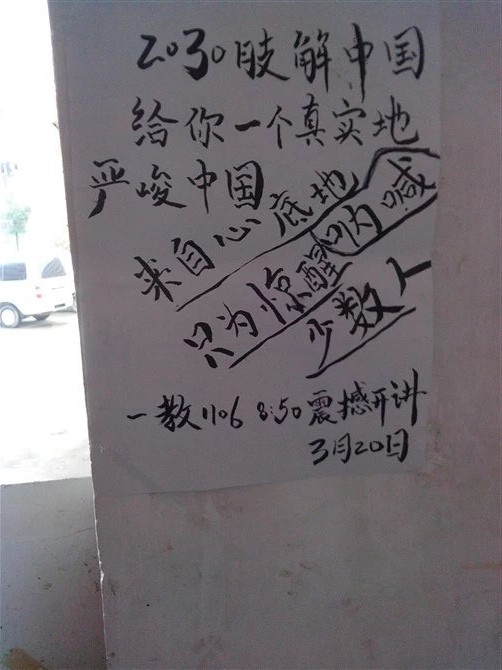 2030肢解中国
给你一个真实地
严峻中国
来自心底地呐喊
只为惊醒少数人
一教1106 8:50 震撼开讲
3月20日